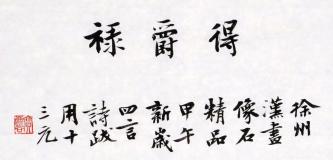 得爵禄
徐州
漢畫
像石
精品
甲午
新歲
四言
詩跋
用十
三元